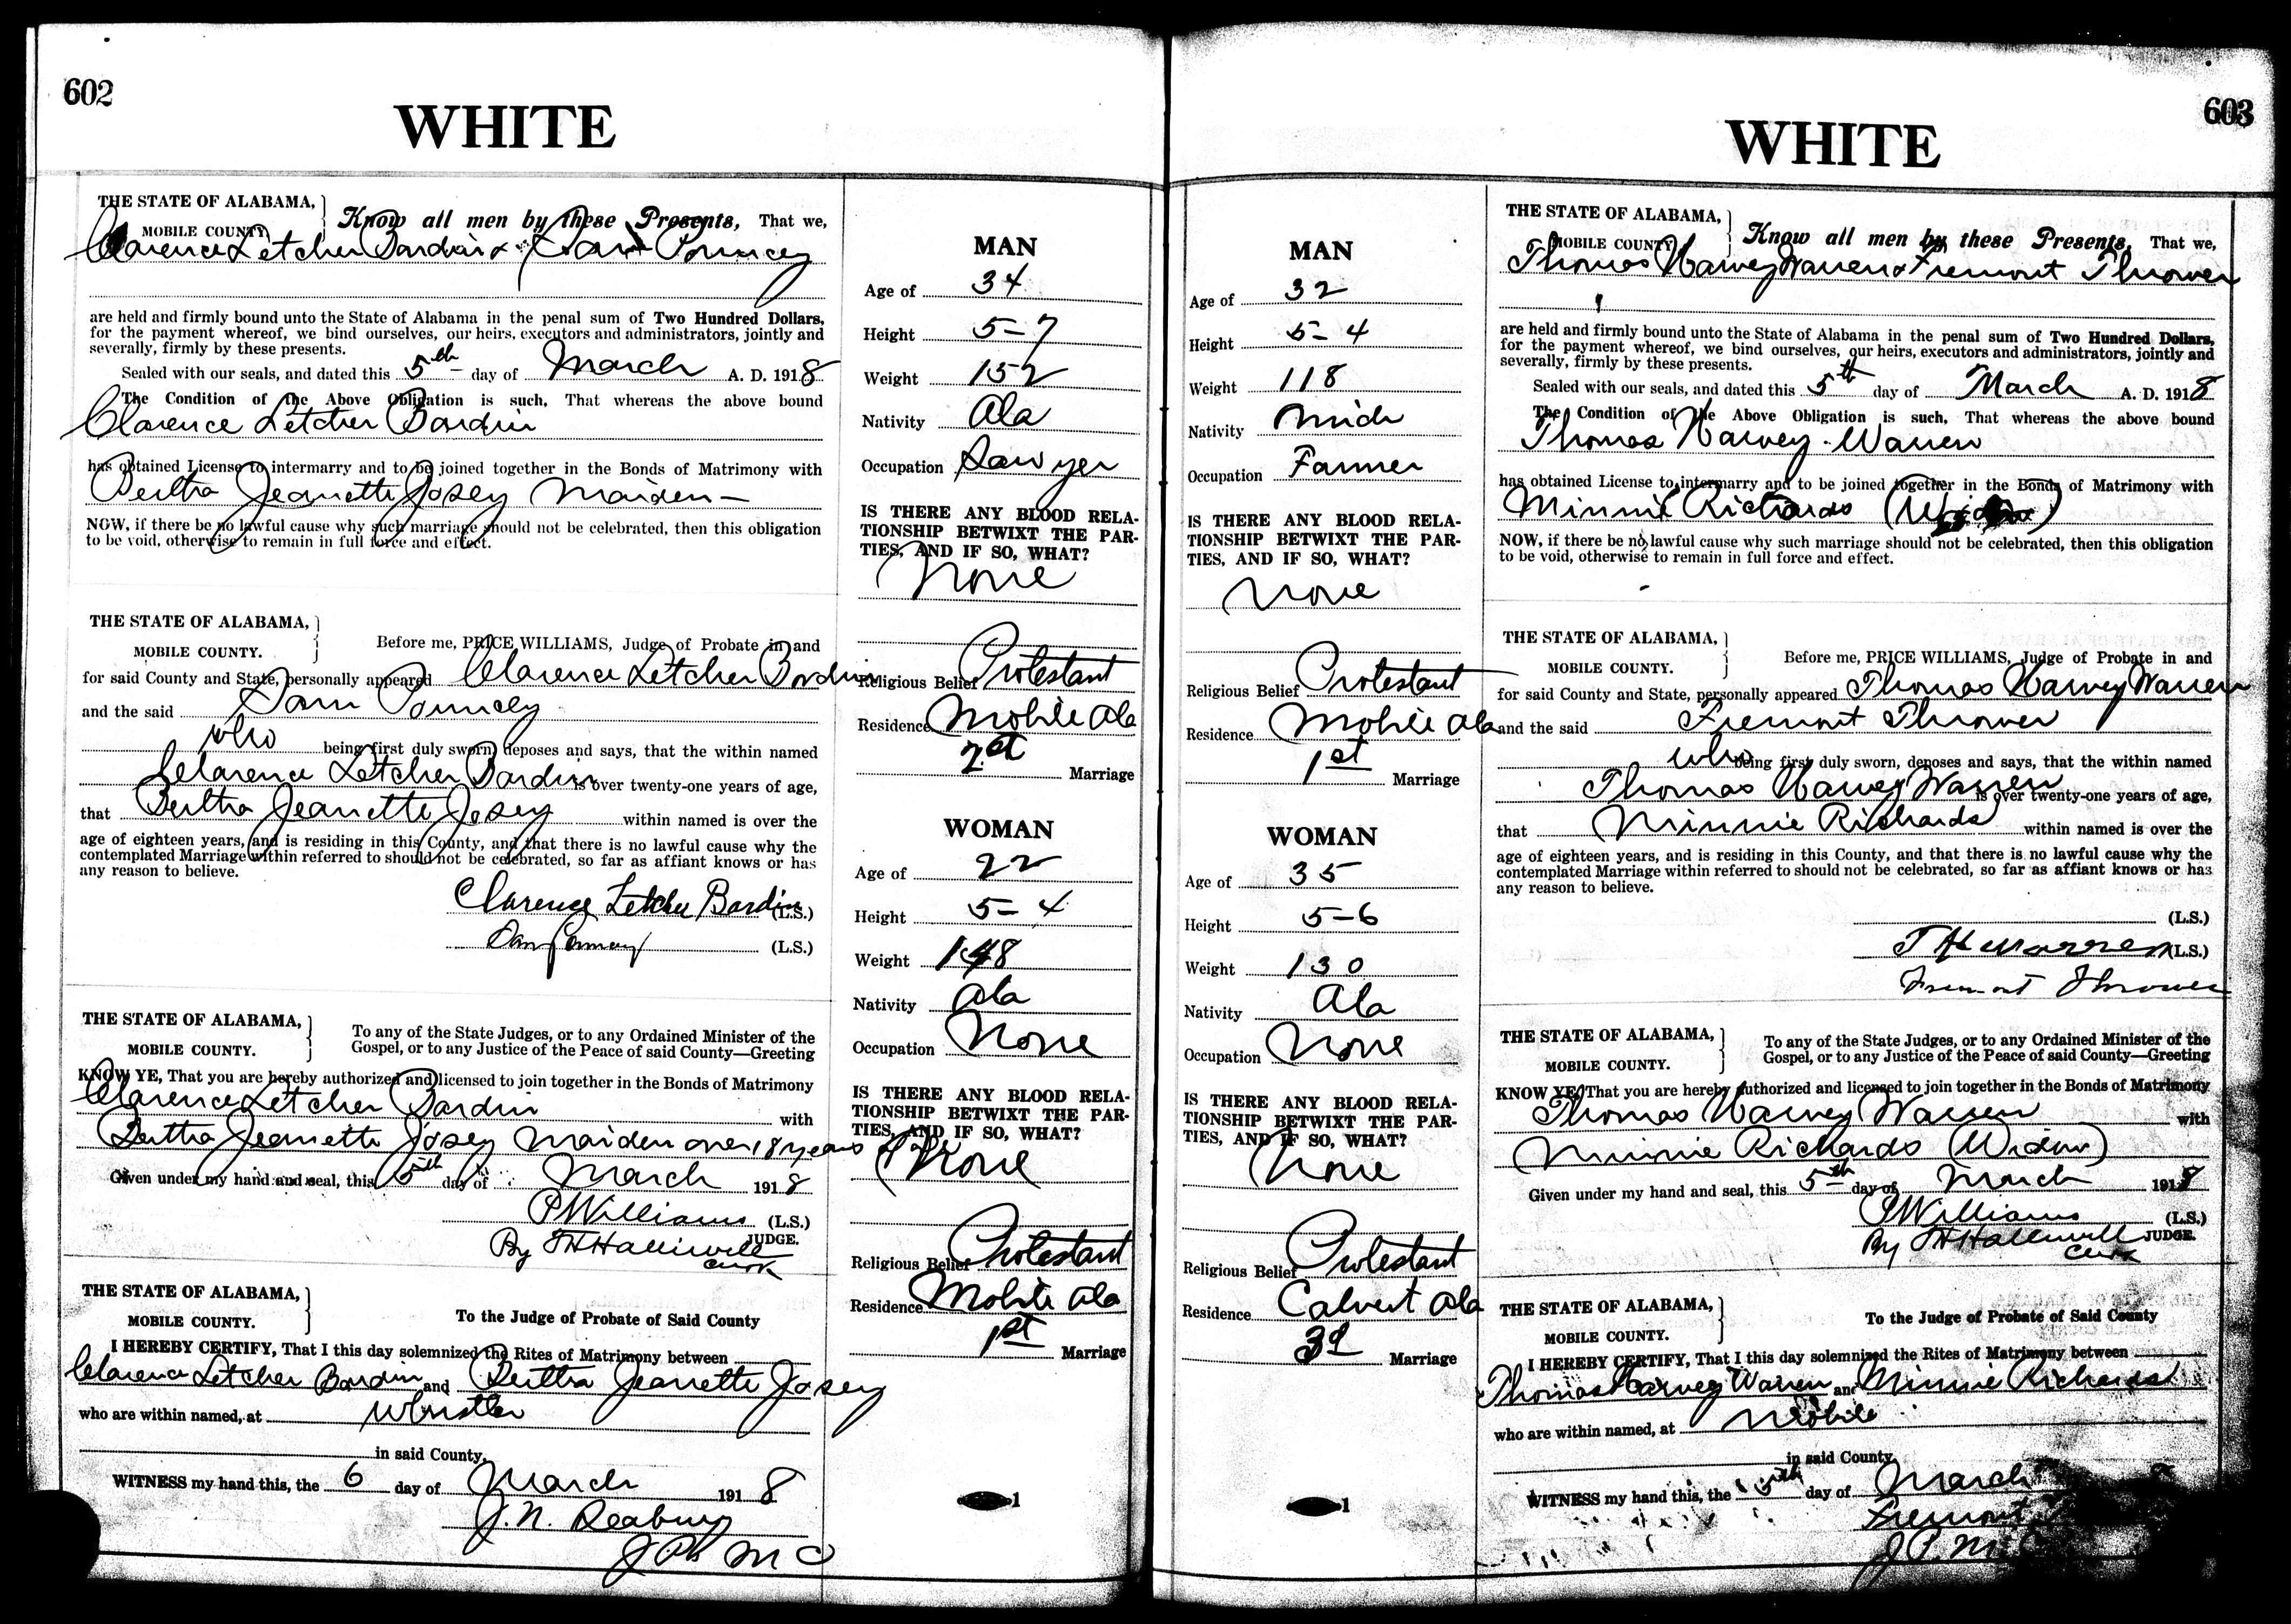 602
WHITE
THE STATE OF ALABAMA,
MOBILE COUNTY
Know all men by these Presents, That we,
Clarence Letcher Bardin & Sam Pouncey
are held and firmly bound unto the State of Alabama in the penal sum of Two Hundred Dollars,
for the payment whereof, we bind ourselves, our heirs, executors and administrators, jointly and
severally, firmly by these presents.
Sealed with our seals, and dated this 5th day of March A. D. 1918
The Condition of the Above Obligation is such, That whereas the above bound
Clarence Letcher Bardin
has obtained License to intermarry and to be joined together in the Bonds of Matrimony with
Bertha Jeanette Josey Maiden—
NOW, if there be no lawful cause why such marriage should not be celebrated, then this obligation
to be void, otherwise to remain in full force and effect.
THE STATE OF ALABAMA,
MOBILE COUNTY.
Before me, PRICE WILLIAMS, Judge of Probate in and
for said County and State, personally appeared Clarence Letcher Bardin
and the said Sam Pouncey
who being first duly sworn, deposes and says, that the within named
Clarence Letcher Bardin is over twenty-one years of age,
that Bertha Jeanette Josey within named is over the
age of eighteen years, and is residing in this County, and that there is no lawful cause why the
contemplated Marriage within referred to should not be celebrated, so far as affiant knows or has
any reason to believe.
Clarence Letcher Bardin (L.S.)
Sam Pouncey (L.S.)
THE STATE OF ALABAMA,
MOBILE COUNTY.
To any of the State Judges, or to any Ordained Minister of the
Gospel, or to any Justice of the Peace of said County—Greeting
KNOW YE, That you are hereby authorized and licensed to join together in the Bonds of Matrimony
Clarence Letcher Bardin with
Bertha Jeanette Josey Maiden over 18 years of age
Given under my hand and seal, this 5th day of March 1918
P Williams (L.S.)
JUDGE.
By TH Halliwell
Clerk
THE STATE OF ALABAMA,
MOBILE COUNTY.
To the Judge of Probate of Said County
I HEREBY CERTIFY, That I this day solemnized the Rites of Matrimony between
Clarence Letcher Bardin and Bertha Jeanette Josey
who are within named, at Whistler
in said County.
WITNESS my hand this, the 6 day of March 1918
J. N. Seabury
J P M C
MAN
Age of 34
Height 5-7
Weight 152
Nativity Ala
Occupation Sawyer
IS THERE ANY BLOOD RELA-
TIONSHIP BETWIXT THE PAR-
TIES, AND IF SO, WHAT?
None
Religious Belief Protestant
Residence Mobile Ala
2st Marriage
WOMAN
Age of 22
Height 5-4
Weight 148
Nativity Ala
Occupation None
IS THERE ANY BLOOD RELA-
TIONSHIP BETWIXT THE PAR-
TIES, AND IF SO, WHAT?
None
Religious Belief Protestant
Residence Mobile Ala
1st Marriage
1
603
WHITE
MAN
Age of 32
Height 5-4
Weight 118
Nativity Mich
Occupation Farmer
IS THERE ANY BLOOD RELA-
TIONSHIP BETWIXT THE PAR-
TIES, AND IF SO, WHAT?
None
Religious Belief Protestant
Residence Mobile Ala
1st Marriage
WOMAN
Age of 35
Height 5-6
Weight 130
Nativity Ala
Occupation None
IS THERE ANY BLOOD RELA-
TIONSHIP BETWIXT THE PAR-
TIES, AND IF SO, WHAT?
None
Religious Belief Protestant
Residence Calvert Ala
3d Marriage
1
THE STATE OF ALABAMA,
MOBILE COUNTY
Know all men by these Presents, That we,
Thomas Harvey Warren & Fremont Thrower
are held and firmly bound unto the State of Alabama in the penal sum of Two Hundred Dollars,
for the payment whereof, we bind ourselves, our heirs, executors and administrators, jointly and
severally, firmly by these presents.
Sealed with our seals, and dated this 5th day of March A. D. 1918
The Condition of the Above Obligation is such, That whereas the above bound
Thomas Harvey Warren
has obtained License to intermarry and to be joined together in the Bonds of Matrimony with
Minnie Richards (Widow)
NOW, if there be no lawful cause why such marriage should not be celebrated, then this obligation
to be void, otherwise to remain in full force and effect.
THE STATE OF ALABAMA,
MOBILE COUNTY.
Before me, PRICE WILLIAMS, Judge of Probate in and
for said County and State, personally appeared Thomas Harvey Warren
and the said Fremont Thrower
who being first duly sworn, deposes and says, that the within named
Thomas Harvey Warren is over twenty-one years of age,
that Minnie Richards within named is over the
age of eighteen years, and is residing in this County, and that there is no lawful cause why the
contemplated Marriage within referred to should not be celebrated, so far as affiant knows or has
any reason to believe.
(L.S.)
T H Warren (L.S.)
Fremont Thrower
THE STATE OF ALABAMA,
MOBILE COUNTY.
To any of the State Judges, or to any Ordained Minister of the
Gospel, or to any Justice of the Peace of said County—Greeting
KNOW YE, That you are hereby authorized and licensed to join together in the Bonds of Matrimony
Thomas Harvey Warren with
Minnie Richards (Widow)
Given under my hand and seal, this 5th day of March 1918
P Williams (L.S.)
JUDGE.
By TH Halliwell
Clerk
THE STATE OF ALABAMA,
MOBILE COUNTY.
To the Judge of Probate of Said County
I HEREBY CERTIFY, That I this day solemnized the Rites of Matrimony between
Thomas Harvey Warren and Minnie Richards
who are within named, at Mobile
in said County.
WITNESS my hand this, the 5th day of March 8
Fremont
J. P. M